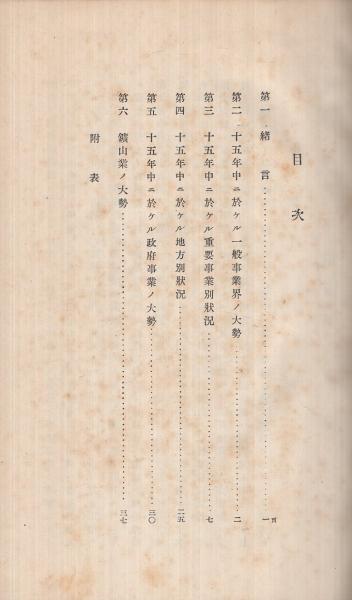 目次
第一 緒言……………………………一頁
第二 十五年中ニ於ケル一般事業界ノ大勢……………………………二
第三 十五年中ニ於ケル重要事業別狀況……………………………七
第四 十五年中ニ於ケル地方別狀況……………………………二五
第五 十五年中ニ於ケル政府事業ノ大勢……………………………三〇
第六 鑛山業ノ大勢……………………………三七
附表